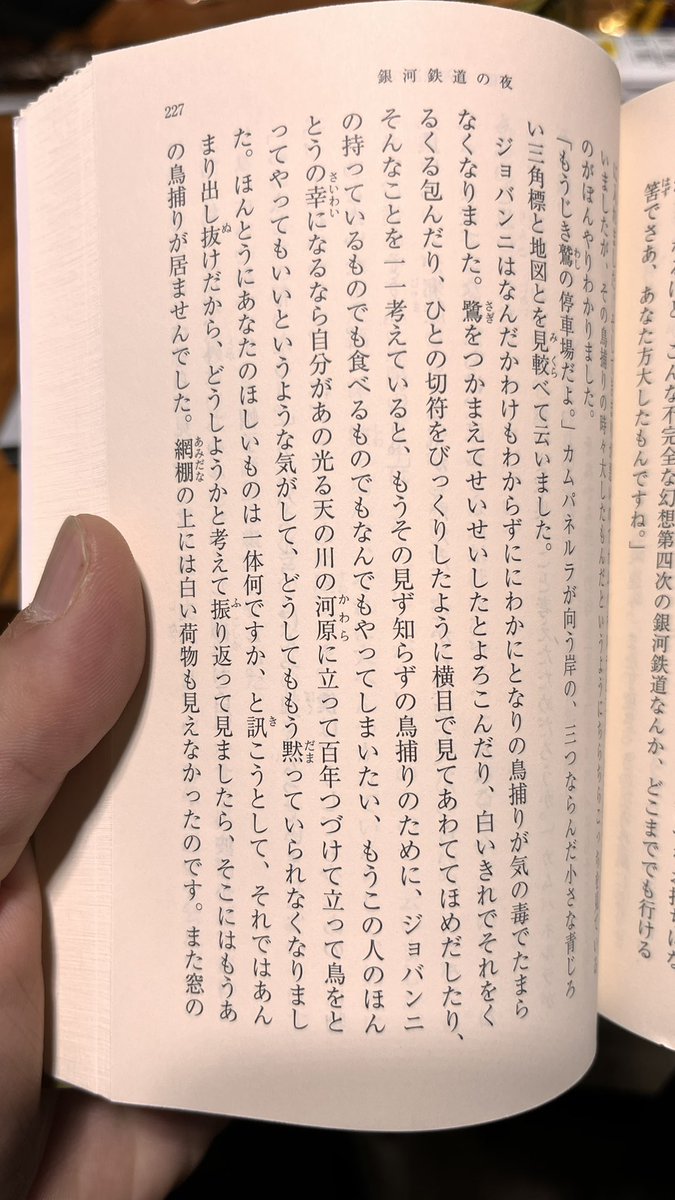 こんな不完全な幻想第四次の銀河鉄道なんか、どこまででも行ける
筈でさあ、あなた方大したもんですね。」
銀河鉄道の夜
227
いましたが、その鳥捕りの時々大したもんだというようにちらちらこっちを見ている
のがぼんやりわかりました。
「もうじき鷲の停車場だよ。」カムパネルラが向う岸の、三つならんだ小さな青じろ
い三角標と地図とを見較べて云いました。
ジョバンニはなんだかわけもわからずににわかにとなりの鳥捕りが気の毒でたまら
なくなりました。鷺をつかまえてせいせいしたとよろこんだり、白いきれでそれをく
るくる包んだり、ひとの切符をびっくりしたように横目で見てあわててほめだしたり、
そんなことを一一考えていると、もうその見ず知らずの鳥捕りのために、ジョバンニ
の持っているものでも食べるものでもなんでもやってしまいたい、もうこの人のほん
とうの幸になるなら自分があの光る天の川の河原に立って百年つづけて立って鳥をと
ってやってもいいというような気がして、どうしてももう黙っていられなくなりまし
た。ほんとうにあなたのほしいものは一体何ですか、と訊こうとして、それではあん
まり出し抜けだから、どうしようかと考えて振り返って見ましたら、そこにはもうあ
の鳥捕りが居ませんでした。網棚の上には白い荷物も見えなかったのです。また窓の